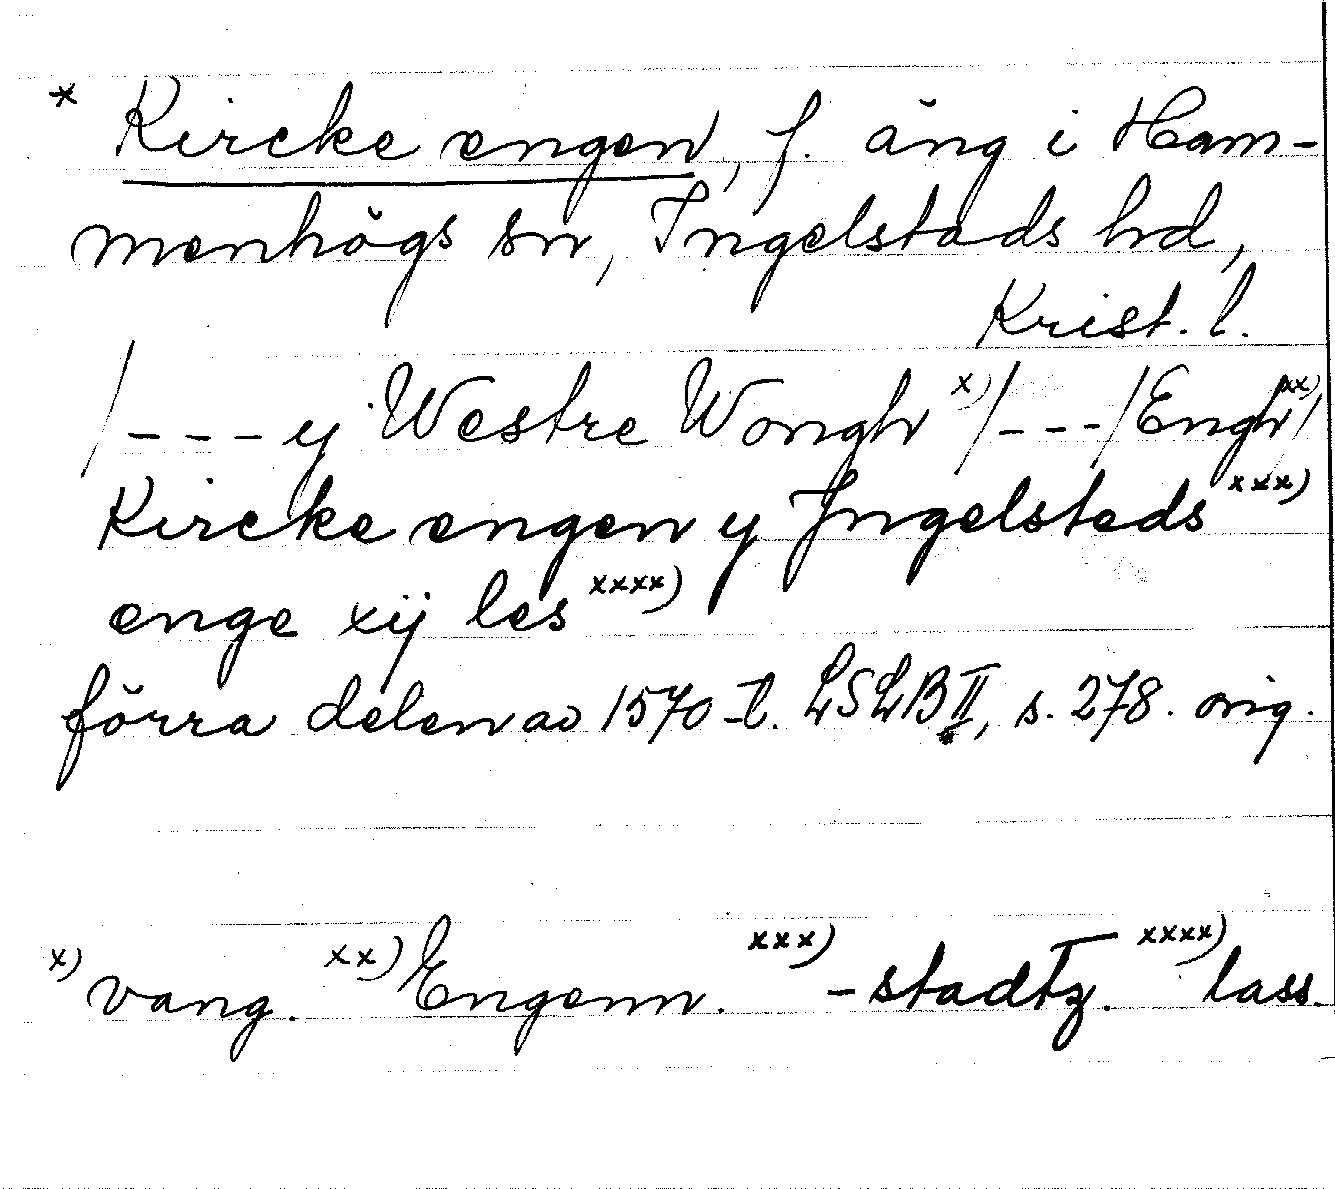 * Kircke engen, f. äng i Ham-
menhögs sn, Ingelstads hd,
Krist. l.
/--- y Westre Wongh x)/---/Engh xx)/
Kircke engen y Jngelsteds xxx)
enge xij les xxxx)
förra delen av 1570-t. LSLB II, s. 278. orig.
x) vang. xx) Engenn. xxx) -stadtz. xxxx) lass.